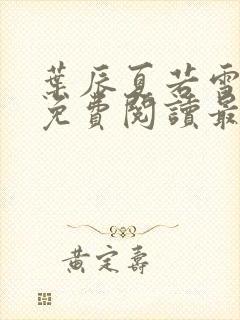 葉辰夏若雪
免費閱讀最
黃定壽